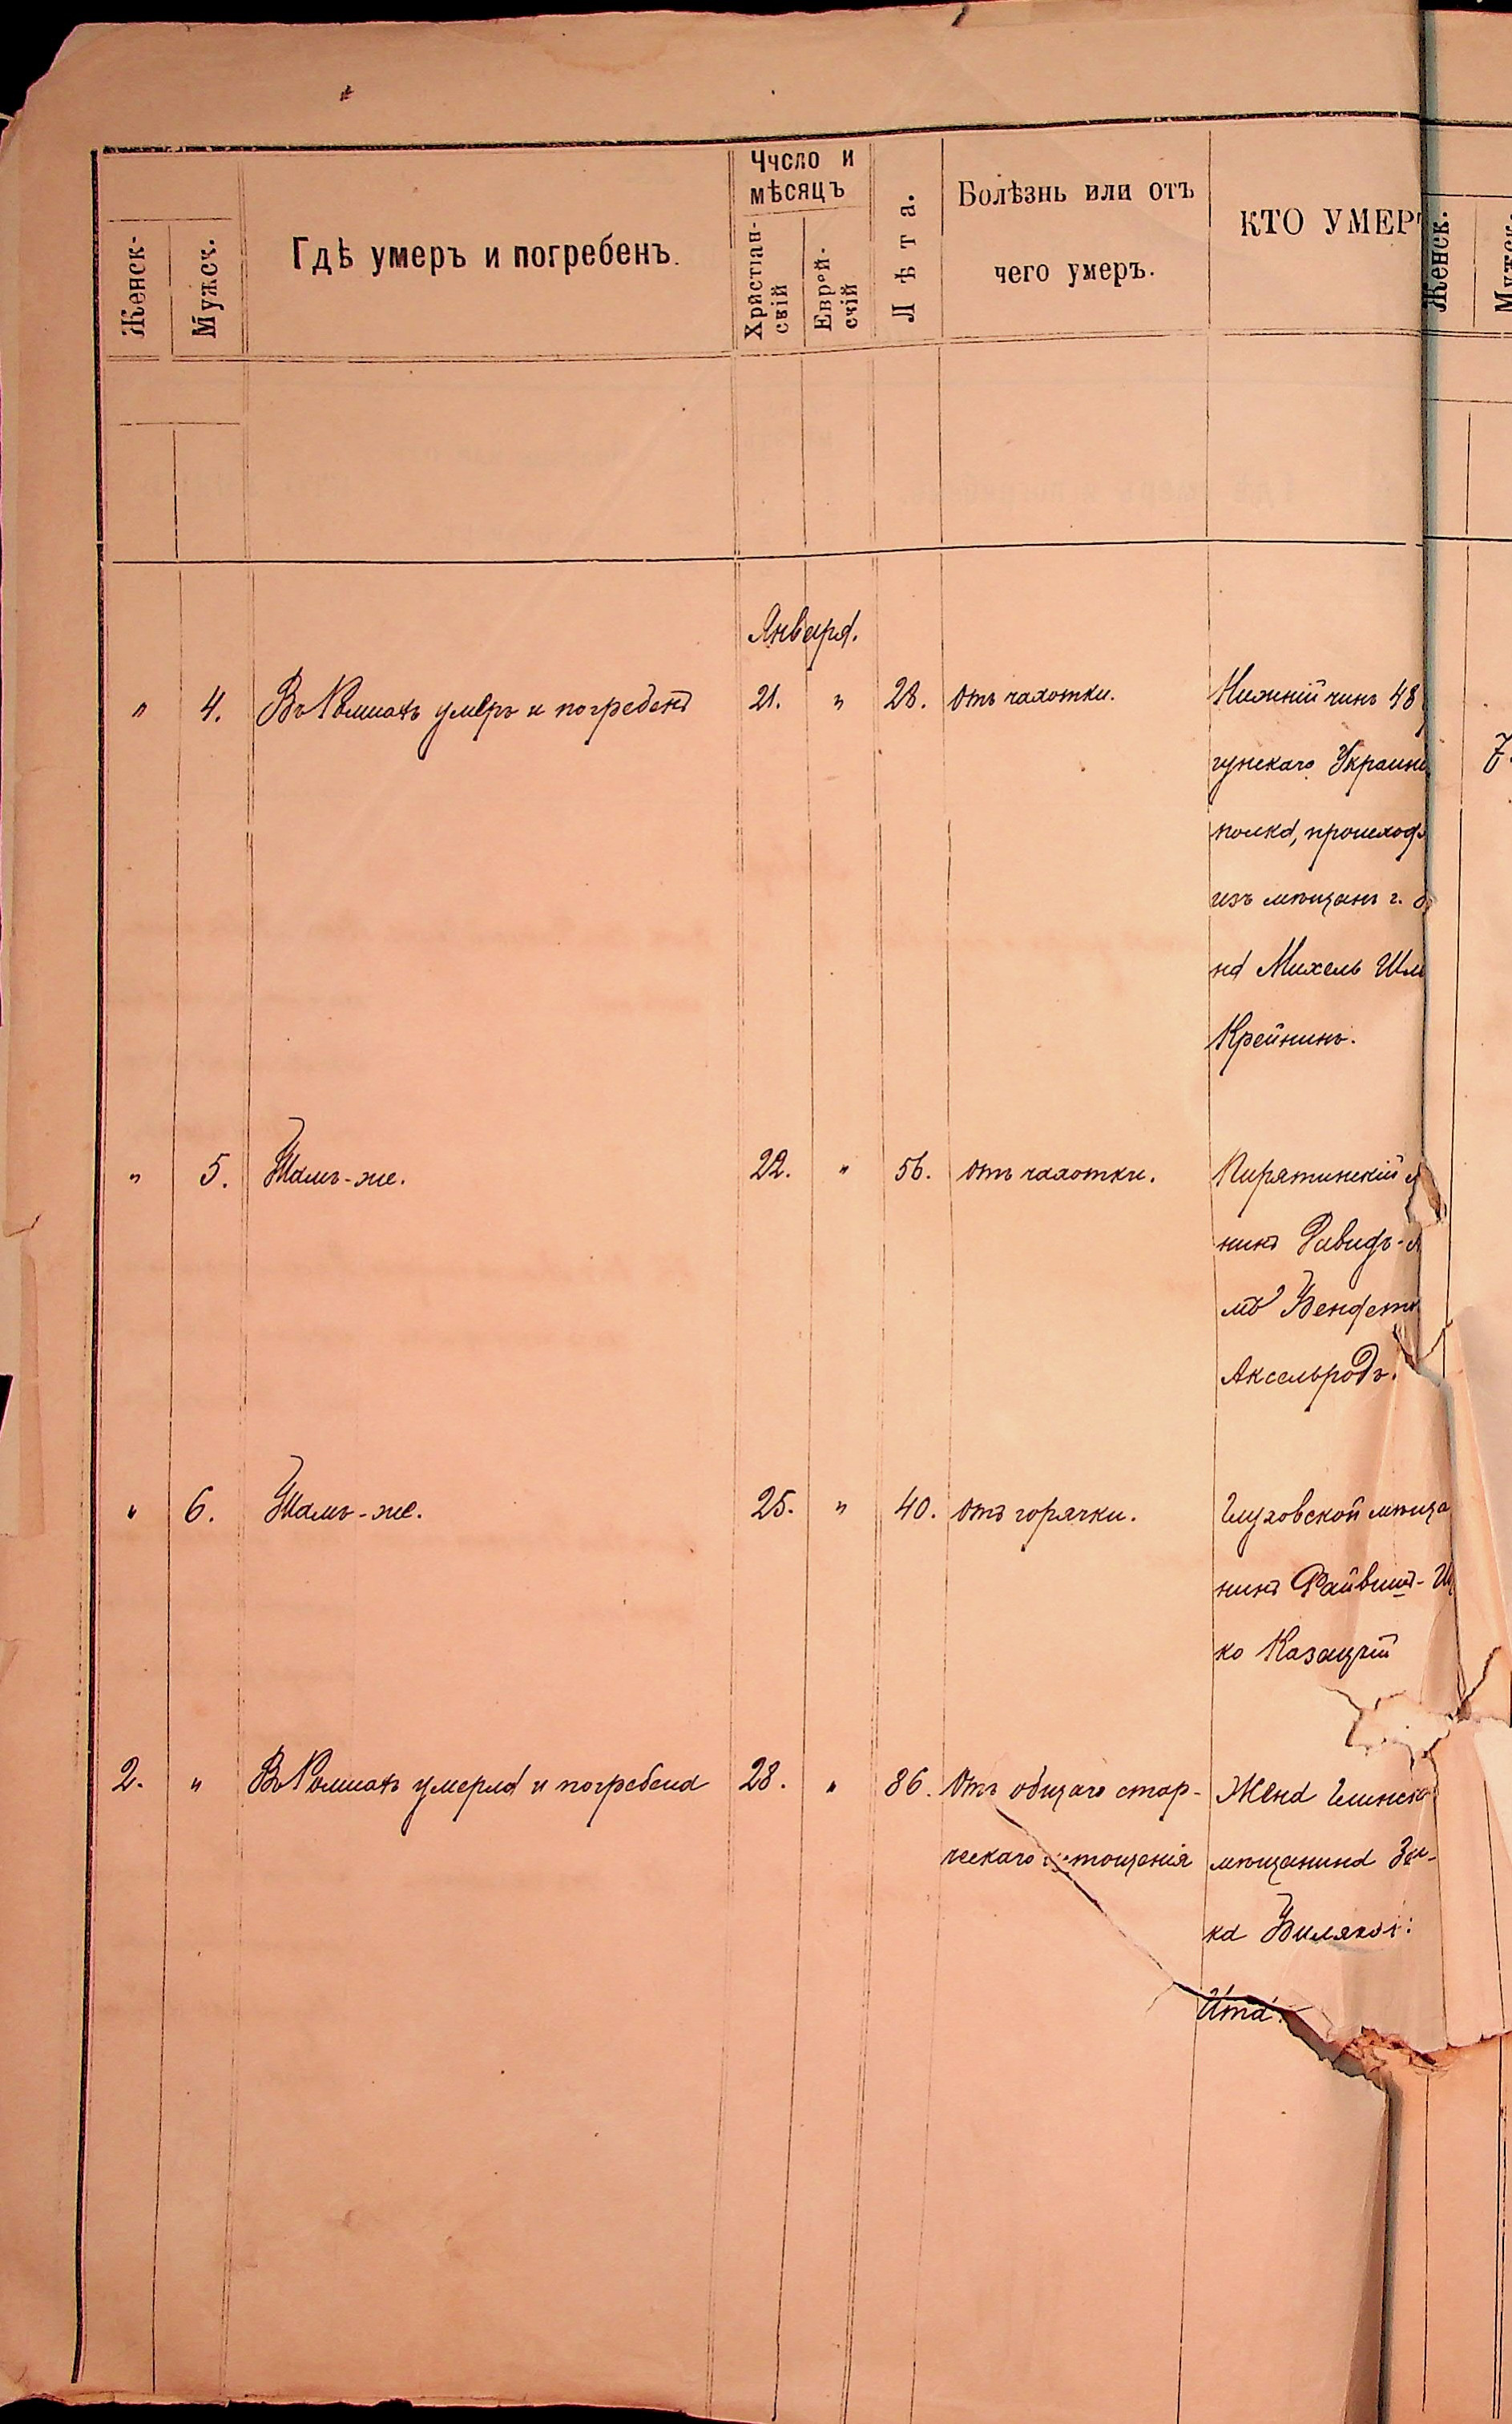 Женск-
Мужск.
Гдѣ умеръ и погребенъ.
Число и
мѣсяцъ
Христіан-
скій
Еврей-
скій
Лѣта.
Болѣзнь или отъ
чего умеръ.
КТО УМЕР
Женск.
Января.
" 4. Въ Ромнахъ умеръ и погребенъ 21. " 28. отъ чахотки. Нижній чинъ 48
гунскаго Украин
полка, происход
изъ мѣщанъ г.
на Михель
Крейнинъ.
7.
" 5. Тамъ-же. 22. " 56. отъ чахотки. Пирятинскій
нинъ Давидъ-
Аксельродъ.
" 6. Тамъ-же. 25. " 40. отъ горячки. Глуховской мѣща
нинъ Файвишъ-
ко Казацкій
2. " Въ Ромнахъ умерла и погребена 28. " 86. Отъ общаго стар- Жена Глинска
ческаго истощенія мѣщанина
ка
Ита.